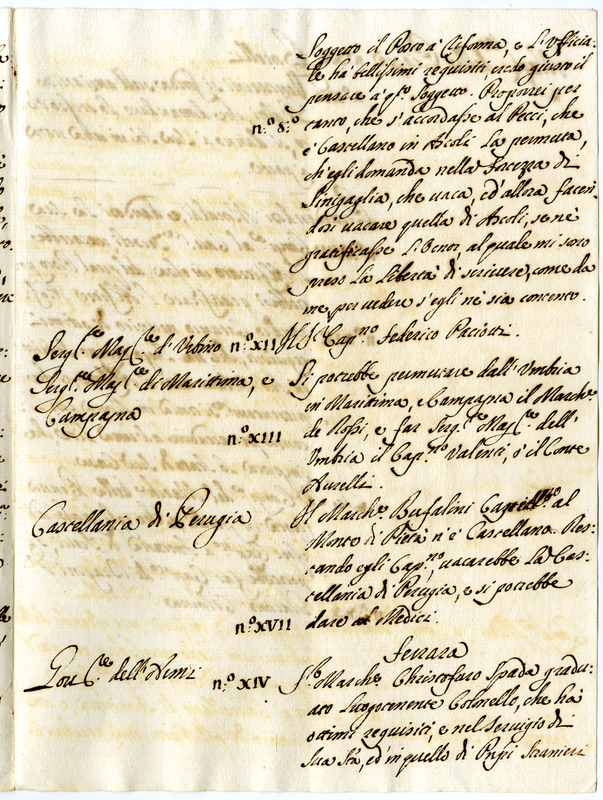 Soggetto il Posto à Cisterna, e L'Uffizia-
le hà bellissimi requisiti, credo giusto il
pensare à qsto Soggetto. Proporrei per
n.º 8:º tanto, che s'accordasse al Pecci, che
è Castellano in Ascoli La permuta,
ch'egli domanda nella Fortezza di
Sinigaglia, che vaca, ed'allora facen-
dosi vacare quella di Ascoli, se nè
gratificasse L'Oenor, al quale mi sono
preso La Libertà di scrivere, come da
me, per vedere s'egli nè sia contento.
Serg.te Mag.re d'Urbino n.º XII Il S.r Cap.no Federico Paciotti.
Serg.te Mag.re di Marittima, e
Campagna
n.º XIII
Si potrebbe permutare dall'Umbria
in Marittima, e Campagna il March.
de Rossi, e far Serg.te Mag.re dell'
Umbria il Cap.no Valenti, ò il Conte
Aurelli.
Castellania di Perugia
Il March.e Bufalini Cap.no al
Monte di Pietà n'è Castellano. Res-
tando egli Cap.no, vacarebbe La Cas-
tellania di Perugia, e si potrebbe
n.º XVII dare al Medici.
Ferrara
Gov.re dell'Armi n.º XIV S.r March.e Christofaro Spada gradu-
ato Luogotenente Colonello, che hà
ottimi requisiti, e nel servigio di
Sua S.tà, ed'in quello di Prpi Stranieri